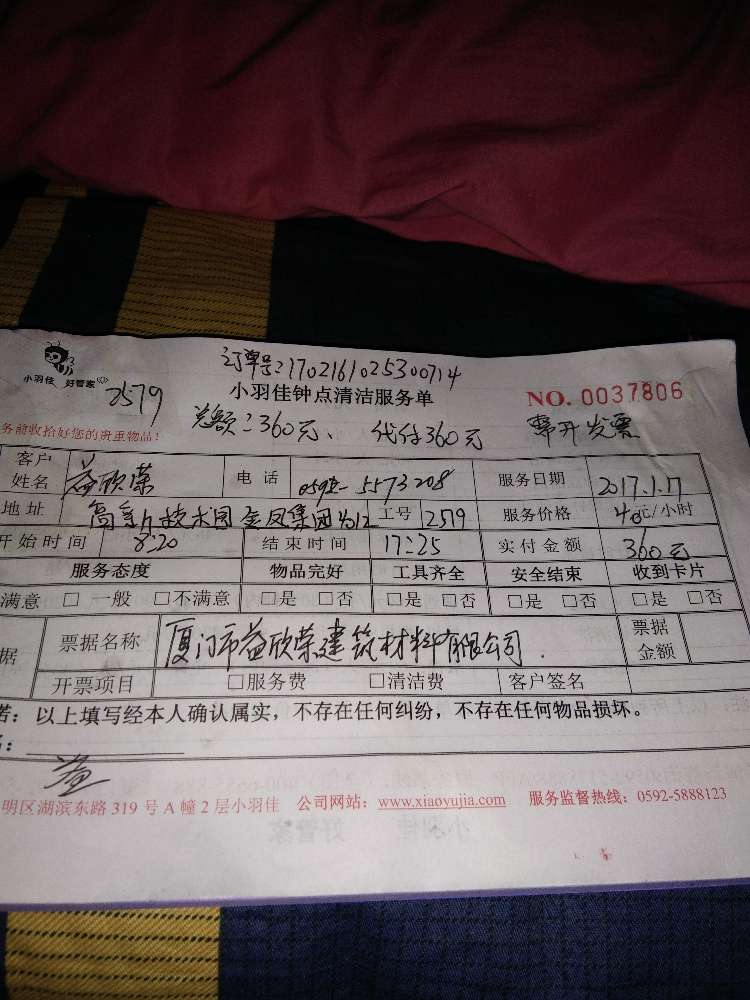 订单号:1702161025300714
小羽佳 好管家
2579
小羽佳钟点清洁服务单
NO. 0037806
务前收拾好您的贵重物品!
总额:360元、 代付360元 需开发票
客户姓名 益欣荣 电话 0592-5573208 服务日期 2017.1.17
地址 金凤集团 工号 2579 服务价格 40元/小时
开始时间 8:20 结束时间 17:25 实付金额 360元
服务态度 物品完好 工具齐全 安全结束 收到卡片
满意 □ 一般 □不满意 □是 □否 □是 □否 □是 □否 □是 □否
据 票据名称 厦门市益欣荣建筑材料有限公司 票据金额
开票项目 □服务费 □清洁费 客户签名
若:以上填写经本人确认属实,不存在任何纠纷,不存在任何物品损坏。
益
明区湖滨东路 319 号 A 幢 2 层小羽佳 公司网站:www.xiaoyujia.com 服务监督热线:0592-5888123